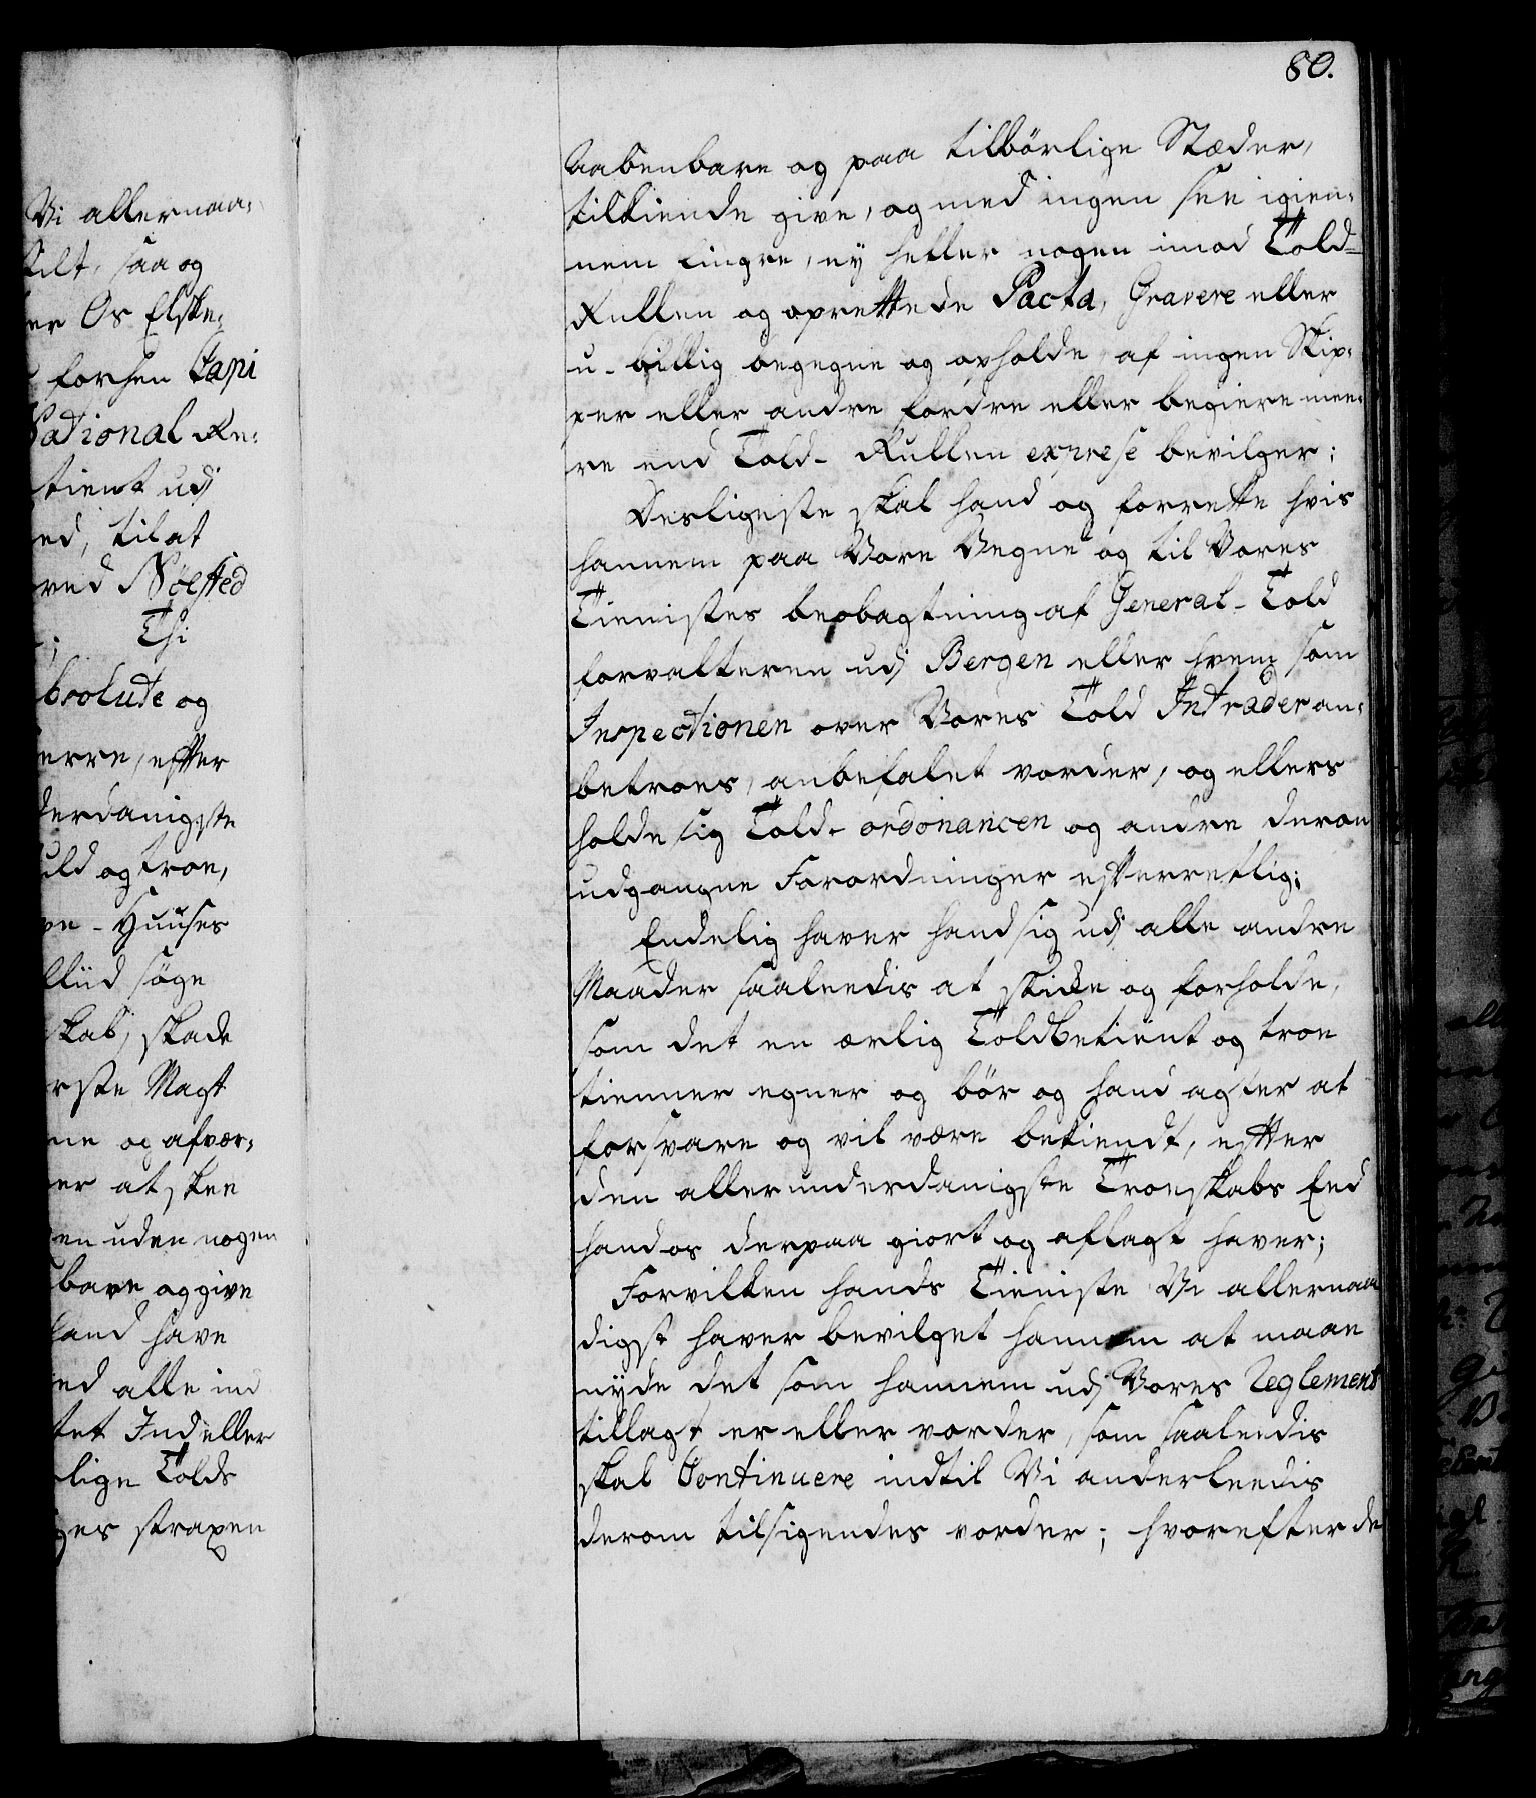 80.
Vi allernaa-
tilt, saa og
er Os Elske-
forhen Capi
National Re-
tient udj
ed, til at
ved Nöested
Thi
bsolute og
erre, effter
derdanigste
uld og troe,
ve-Huuses
fliid søge
skab, skade
rste Magt
ne og afvær-
er at skee
en uden nogen
bare og give
land have
ed alle ind
tet Ind eller
lige Tolds
ges straxen
Aabenbare og paa tilbörlige Stæder,
tilkiende give, og med ingen see igien-
nem fingre, ey heller nogen imod Told-
Rullen og oprettede Pacta, Gravere eller
u-billig begegne og opholde, af ingen Skip-
per eller andre fordre eller begiere mee-
re end Told-Rullen exprese bevilger;
Desligeste skal hand og forrette hvis
hannem paa Vore Vegne og til Vores
Tienistes beobagtning af General-Told
forvalteren udj Bergen eller hvem som
Inspectionen over Vores Told Intrader an-
betroes, anbefalet vorder, og ellers
holde sig Told-ordonancen og andre derom
udgangne Forordninger effterretlig;
Endelig haver hand sig udj alle andre
Maader saaleedis at skicke og forholde,
som det en ærlig Toldbetient og troe
tienner egner og bör og hand agter at
forsvare og vil være bekiendt, effter
den allerunderdanigste Troeskabs Eed
hand os derpaa giort og aflagt haver;
Forvilken hands Tieniste Vi allernaa
digst haver bevilget hannem at maae
nyde det som hannem udj Vores Reglement
tillagt er eller vorder, som saaleedis
skal Continuere indtil Vi anderleedis
derom tilsigendes vorder; hvorefter de